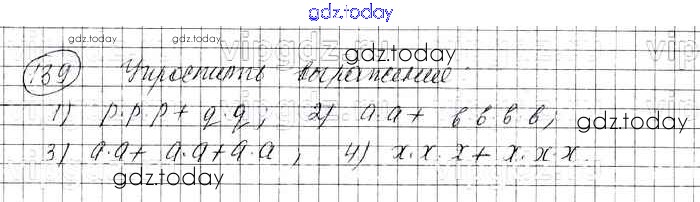 gdz.today
gdz.today gdz.today gdz.today
139 Упростить выражение.
1) p·p·p + q·q; 2) a·a + b b b b; gdz.today
3) a·a + a·a + a·a; 4) x·x·x + x·x·x.
gdz.today